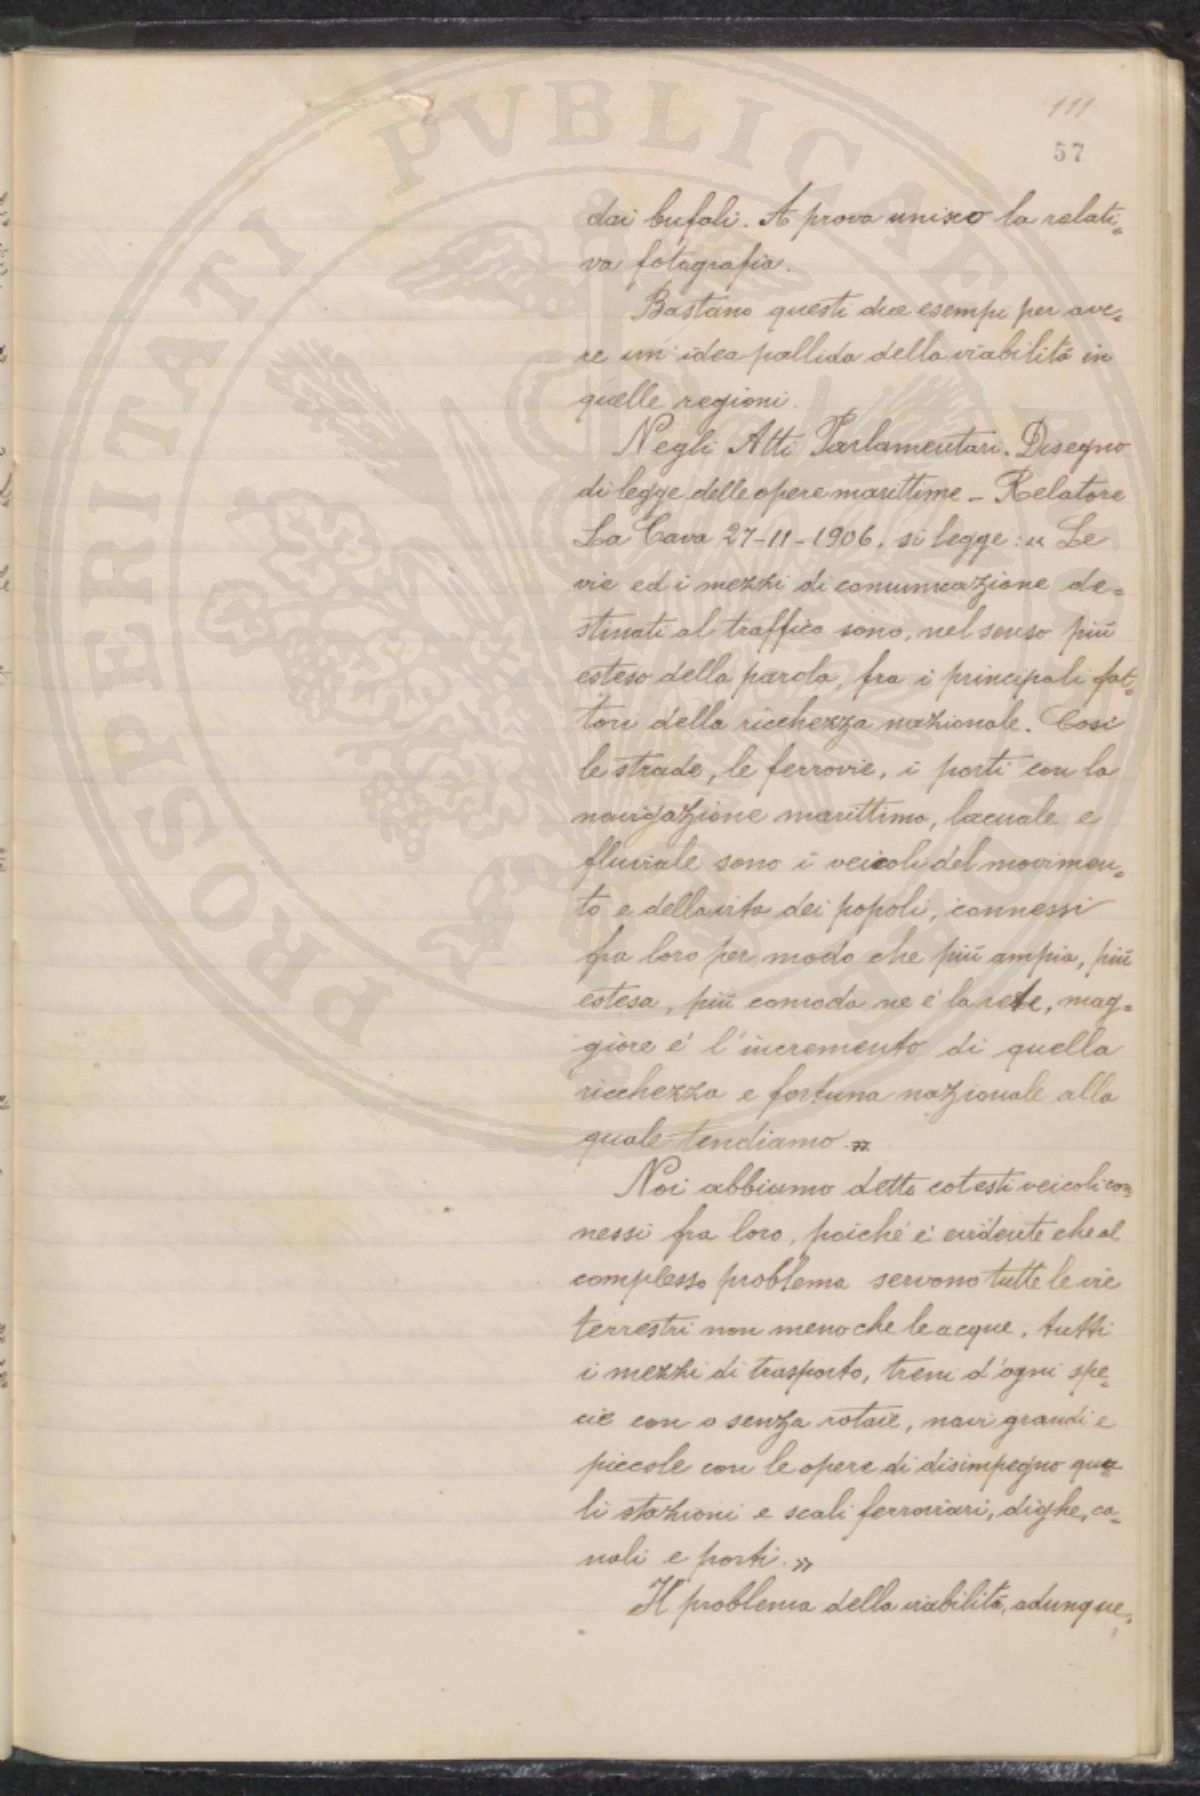 111
57
dai bufali. A prova unisco la relati=
va fotografia.
Bastano questi due esempi per ave=
re un'idea pallida della viabilità in
quelle regioni.
Negli Atti Parlamentari. Disegno
di legge delle opere marittime – Relatore
La Cava 27-11-1906, si legge: « Le
vie ed i mezzi di comunicazione de=
stinati al traffico sono, nel senso più
esteso della parola, fra i principali fat=
tori della ricchezza nazionale. Così
le strade, le ferrovie, i porti con la
navigazione marittima, lacuale e
fluviale sono i veicoli del movimen=
to e della vita dei popoli, connessi
fra loro per modo che più ampia, più
estesa, più comoda ne è la rete, mag=
giore è l'incremento di quella
ricchezza e fortuna nazionale alla
quale tendiamo. »
Noi abbiamo detto cotesti veicoli con=
nessi fra loro, poiché è evidente che al
complesso problema servono tutte le vie
terrestri non meno che le acque, tutti
i mezzi di trasporto, treni d'ogni spe=
cie con o senza rotaie, navi grandi e
piccole con le opere di disimpegno qua=
li stazioni e scali ferroviari, dighe, ca=
nali e porti. »
Il problema della viabilità, adunque,
PROSPERITATI PVBLICAE